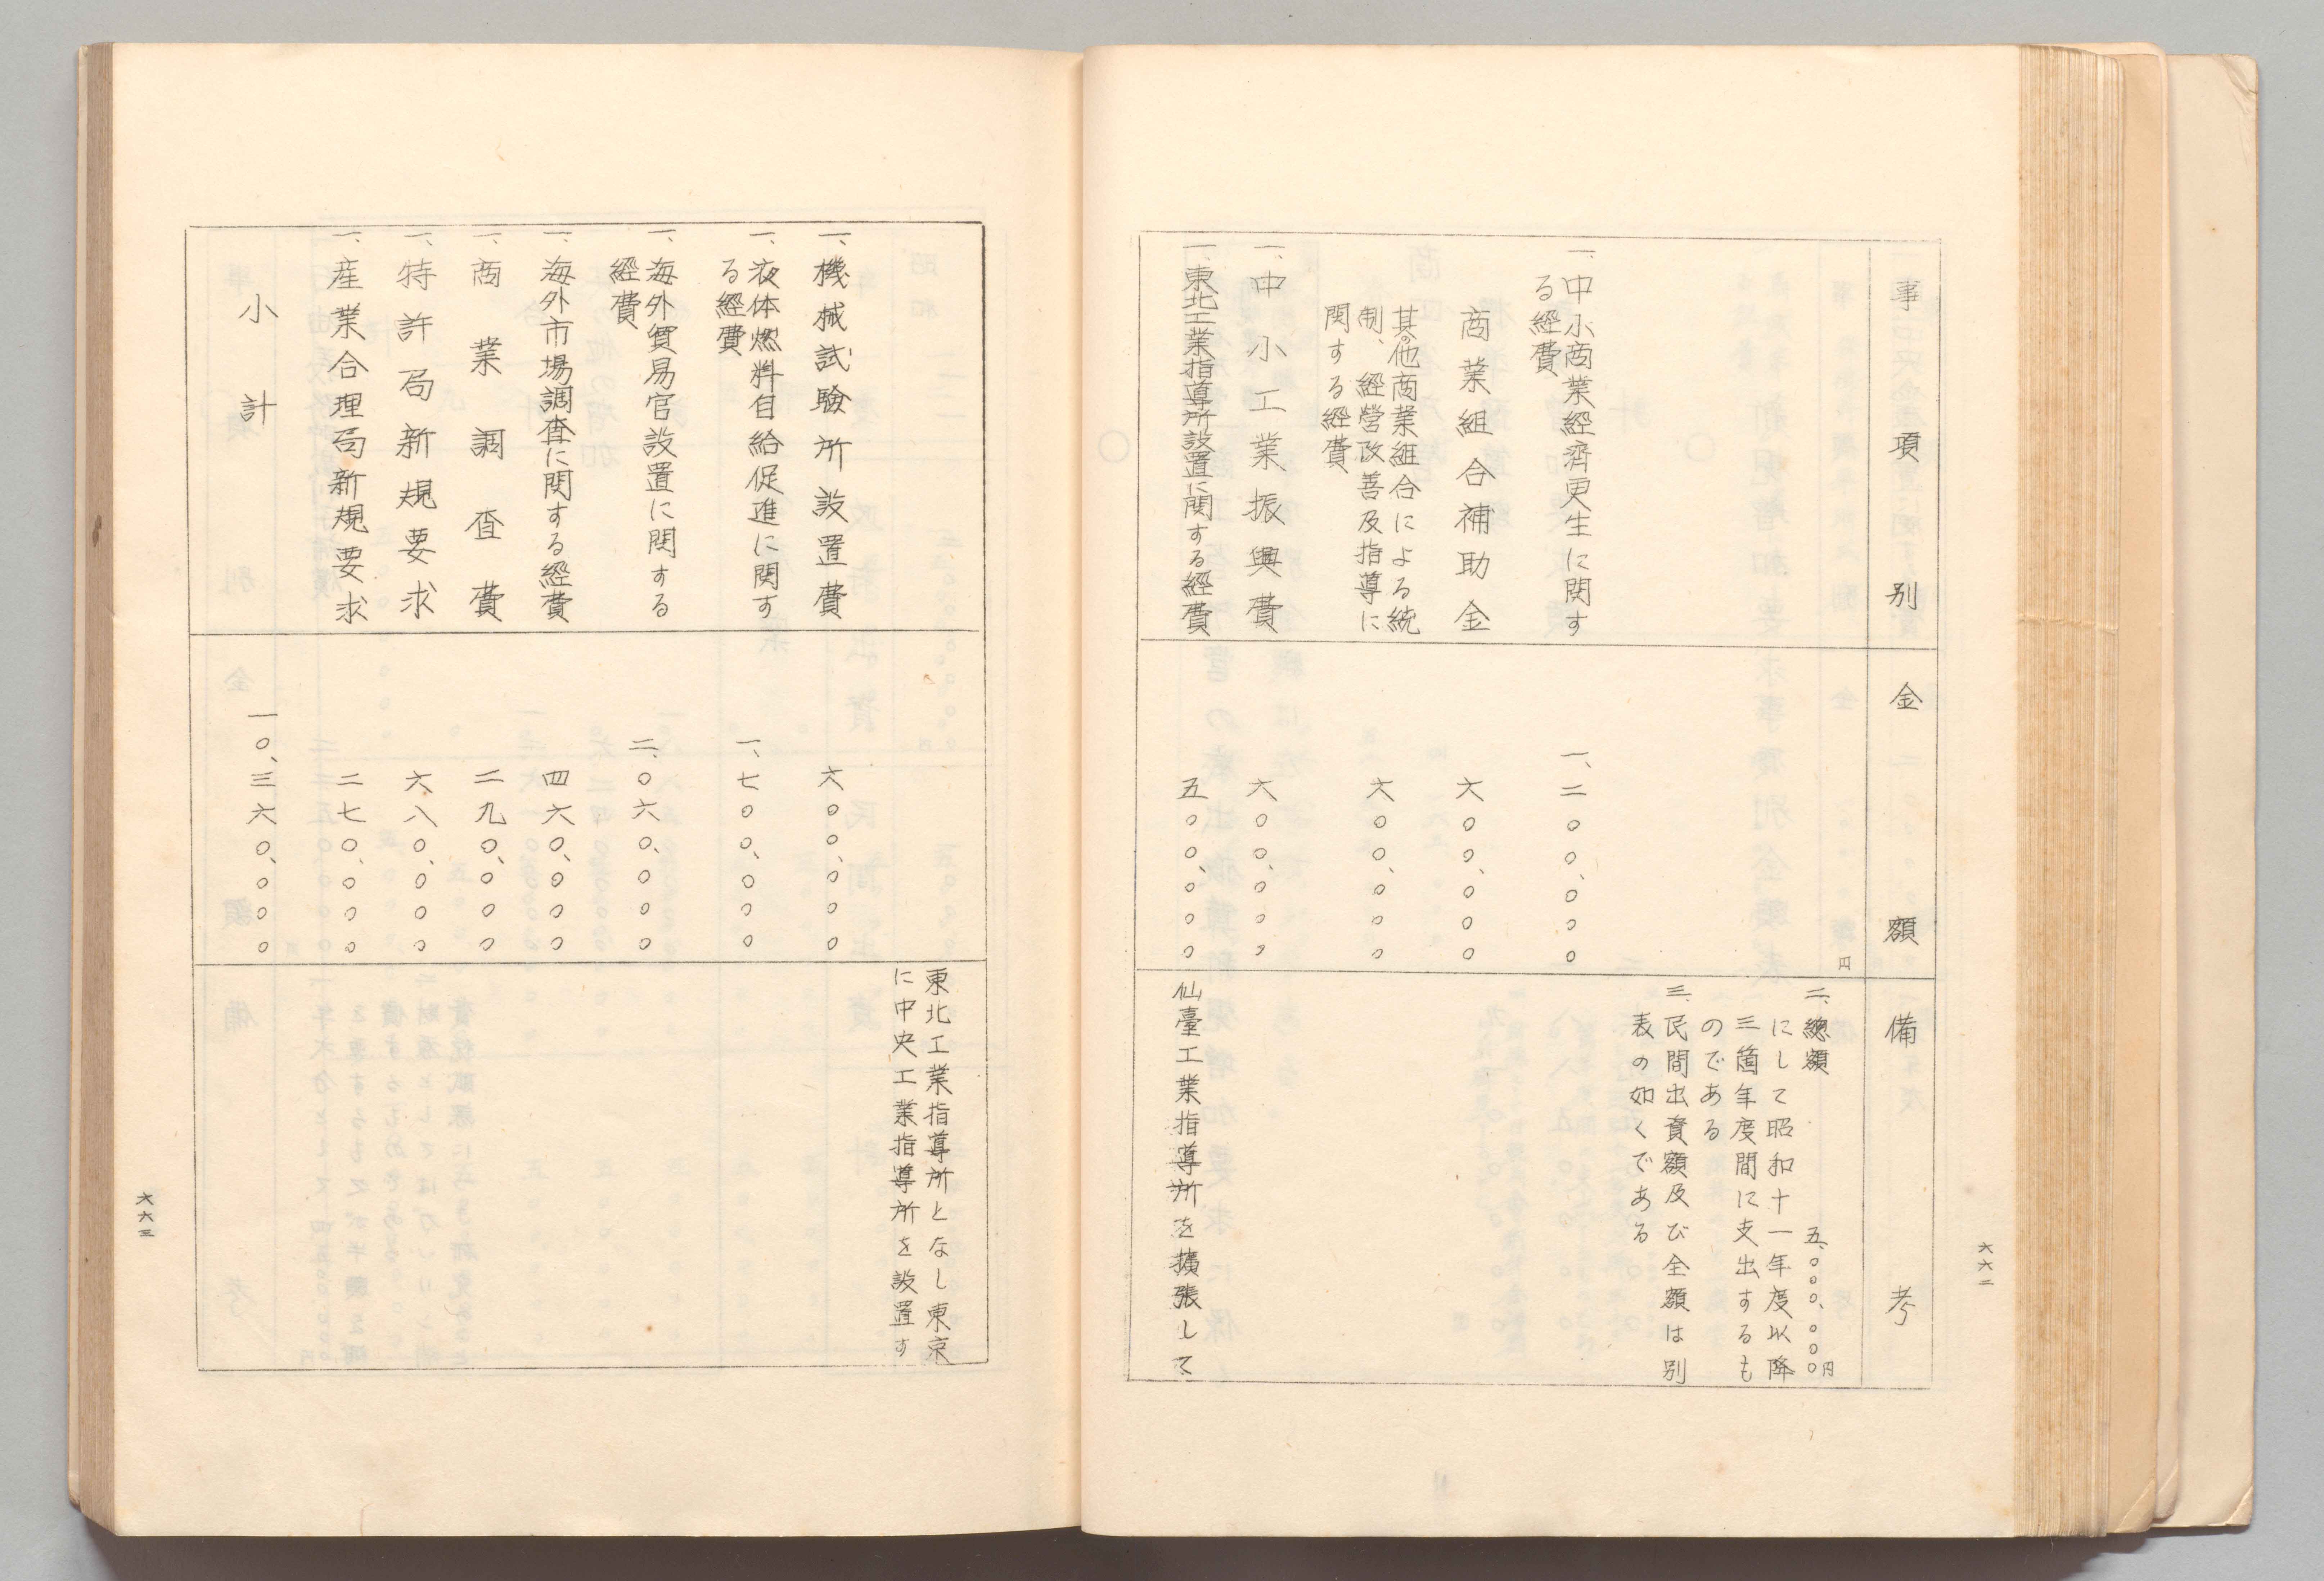 六六二
事項別
金額
備考
円
二、總額 五、〇〇〇、〇〇〇円
にして昭和十一年度以降
三箇年度間に支出するも
のである
三、民間出資額及び全額は別
表の如くである
一、中小商業經濟更生に関す
る經費
一、二〇〇、〇〇〇
商業組合補助金
六〇〇、〇〇〇
其の他商業組合による統
制、經營改善及指導に
関する經費
六〇〇、〇〇〇
一、中小工業振興費
六〇〇、〇〇〇
一、東北工業指導所設置に関する經費
五〇〇、〇〇〇
仙臺工業指導所を擴張して
東北工業指導所となし東京
に中央工業指導所を設置す
一、機械試驗所設置費
六〇〇、〇〇〇
一、液体燃料自給促進に関す
る經費
一、七〇〇、〇〇〇
一、海外貿易官設置に関する
經費
二、〇六〇、〇〇〇
一、海外市場調査に関する經費
四六〇、〇〇〇
一、商業調査費
二九〇、〇〇〇
一、特許局新規要求
六八〇、〇〇〇
一、産業合理局新規要求
二七〇、〇〇〇
小計
一〇、三六〇、〇〇〇
六六三